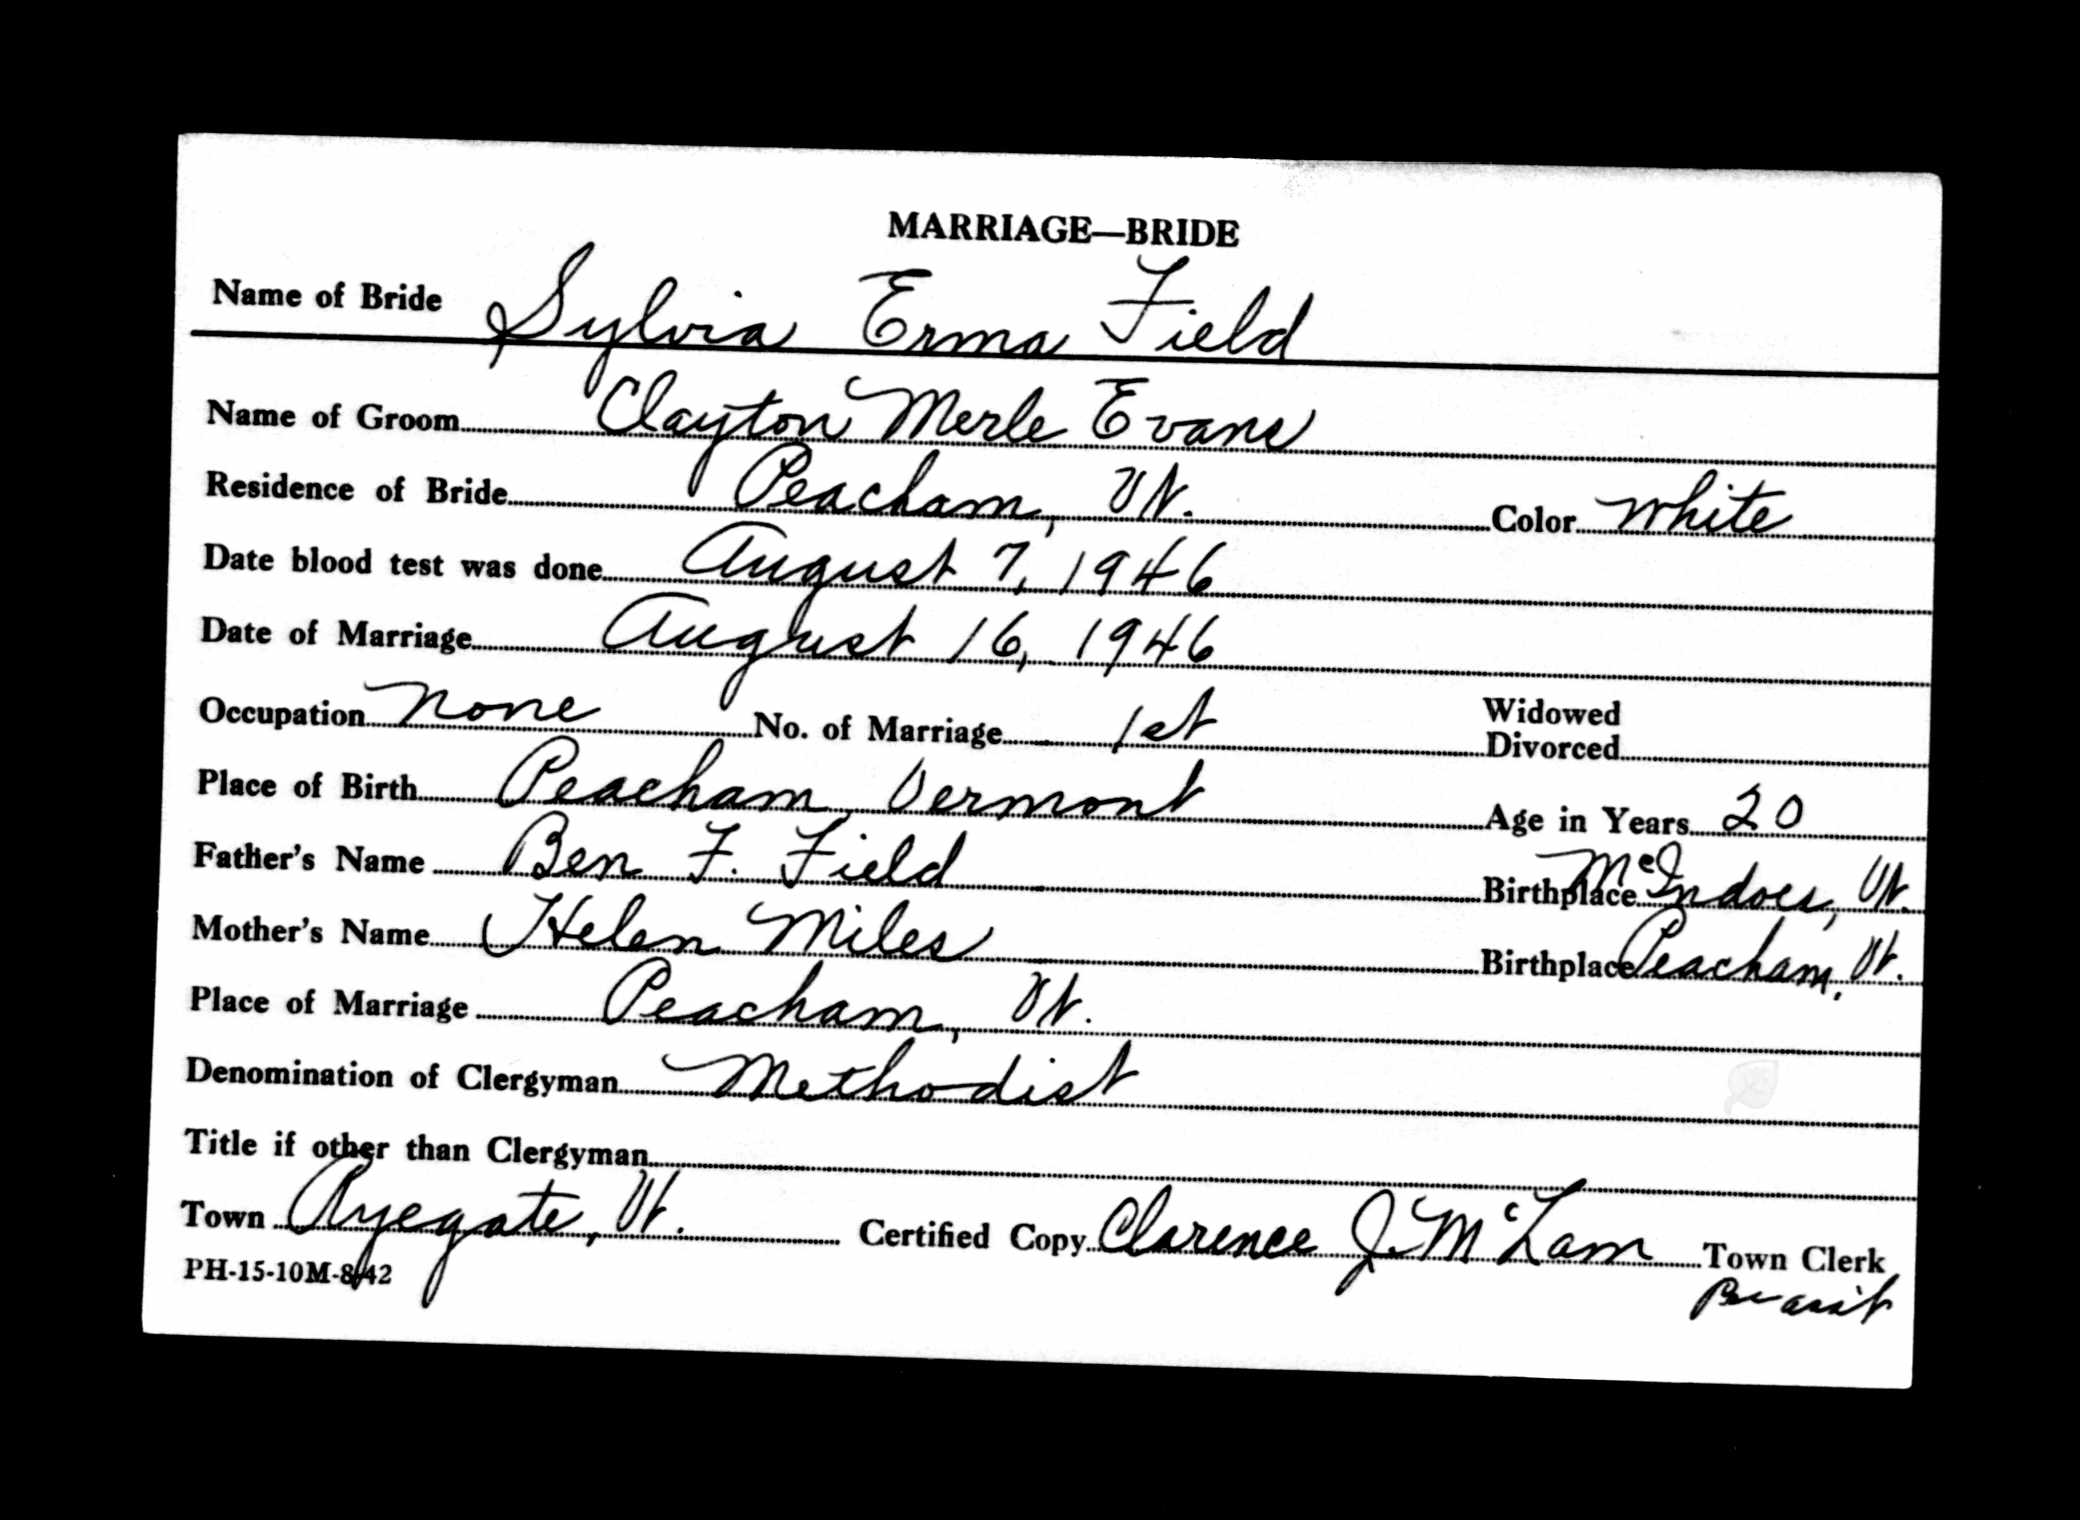 MARRIAGE—BRIDE
Name of Bride Sylvia Erma Field
Name of Groom Clayton Merle Evans
Residence of Bride Peacham, Vt. Color White
Date blood test was done August 7, 1946
Date of Marriage August 16, 1946
Occupation None No. of Marriage 1st Widowed Divorced
Place of Birth Peacham, Vermont Age in Years 20
Father's Name Ben F. Field Birthplace McIndoes, Vt.
Mother's Name Helen Miles Birthplace Peacham, Vt.
Place of Marriage Peacham, Vt.
Denomination of Clergyman Methodist
Title if other than Clergyman
Town Ryegate, Vt. Certified Copy Clarence J. McLam Town Clerk
PH-15-10M-8-42